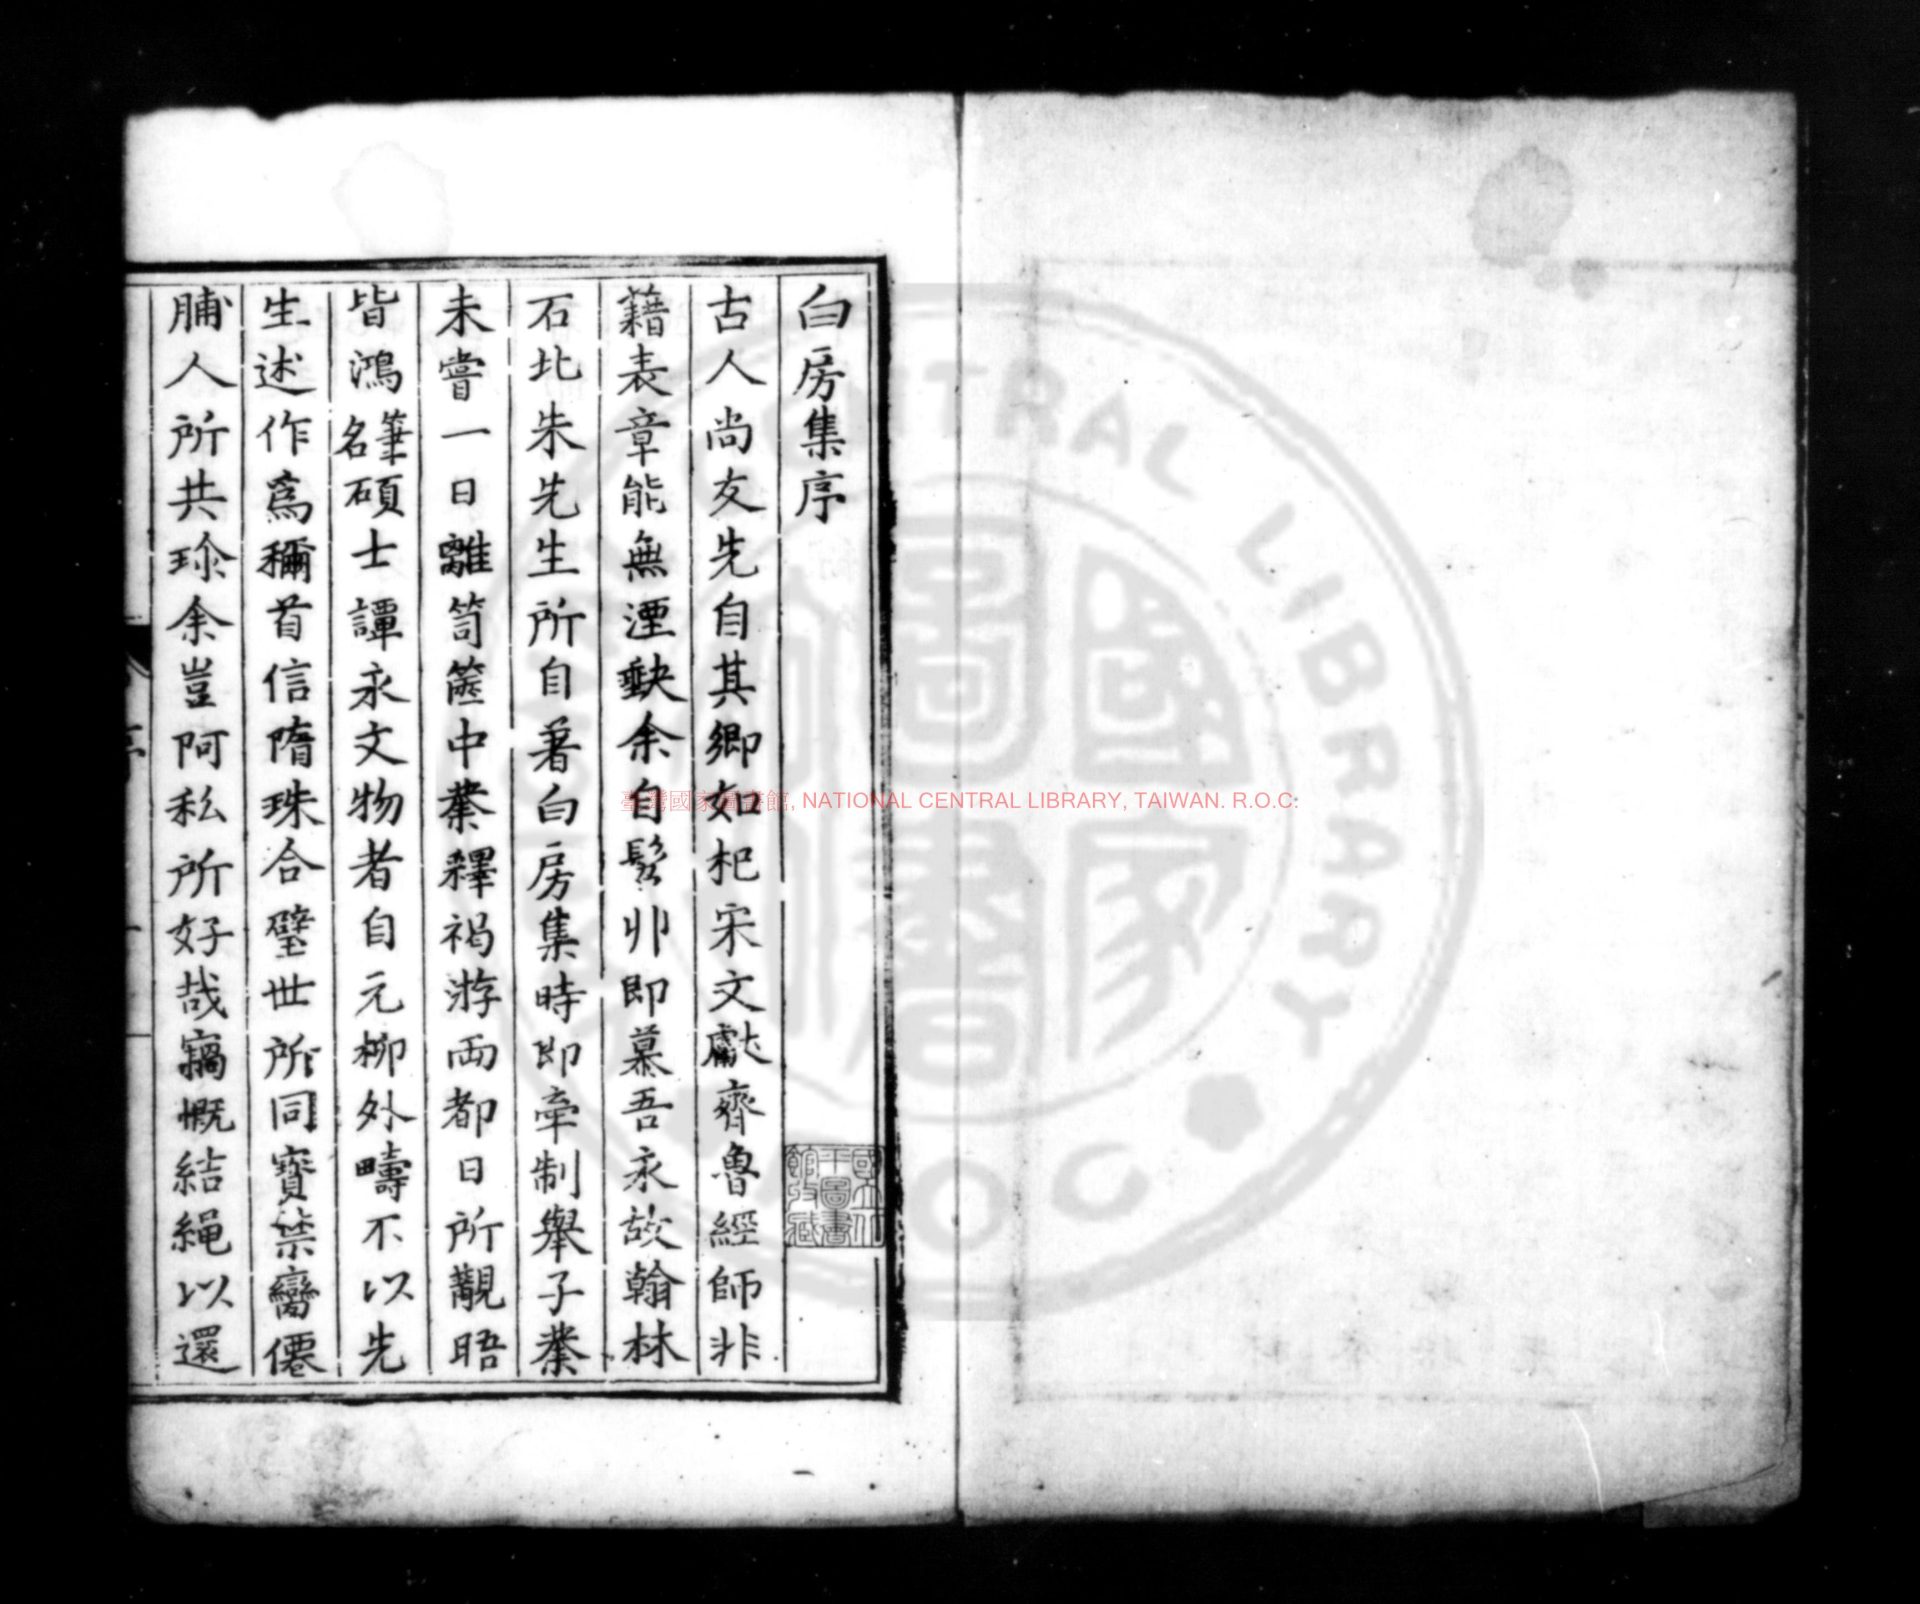 白房集序
古人尚友先自其鄉如杞宋文獻齊魯經師非
籍表章能無湮缺余自髫丱即慕吾永故翰林
石北朱先生所自著白房集時即牵制舉子業
未嘗一日離笥篋中業釋褐游两都日所覯晤
皆鴻名筆碩士譚永文物者自元柳外疇不以先
生述作爲稱首信隋珠合璧世所同寳禁臠僊
脯人所共珎余豈阿私所好哉竊慨結繩以還
序
國立北
平圖書
館收藏
臺灣國家圖書館, NATIONAL CENTRAL LIBRARY, TAIWAN. R.O.C.